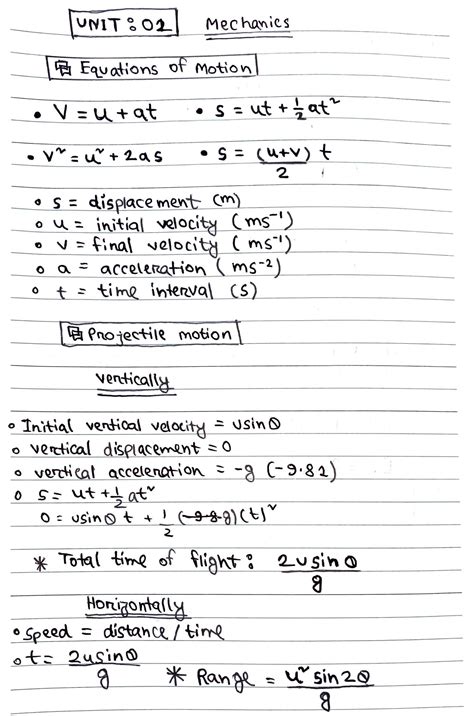 UNIT : 02 Mechanics
Equations of Motion
• V = u + at • s = ut + ½ at²
• v² = u² + 2as • s = (u+v)/2 t
• s = displacement (m)
• u = initial velocity (ms⁻¹)
• v = final velocity (ms⁻¹)
• a = acceleration (ms⁻²)
• t = time interval (s)
Projectile motion
vertically
• Initial vertical velocity = usinθ
• vertical displacement = 0
• vertical acceleration = -g (-9.81)
• s = ut + ½ at²
0 = usinθ t + ½ (-g)(t)²
* Total time of flight : 2usinθ/g
Horizontally
• speed = distance / time
• t = 2usinθ/g * Range = u² sin2θ/g